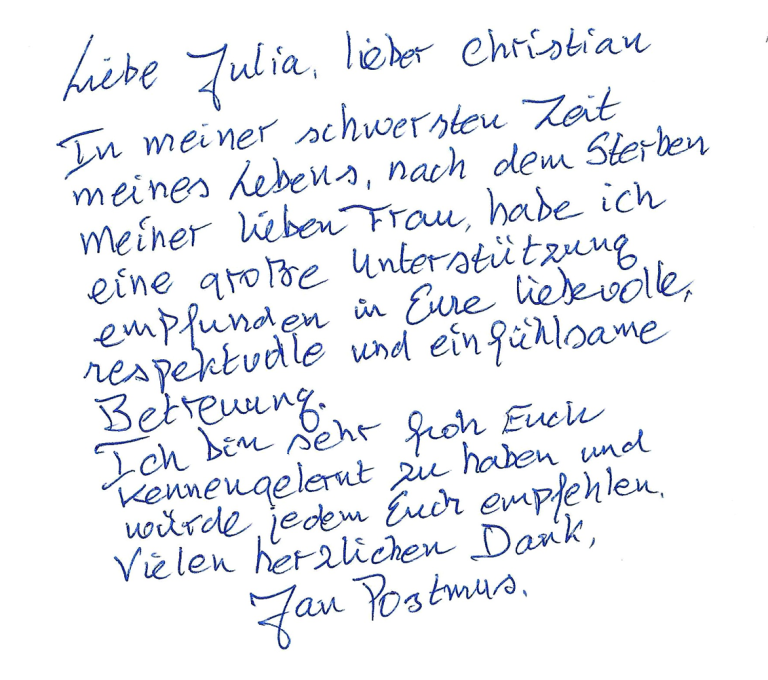 Liebe Julia, lieber Christian
In meiner schwersten Zeit
meines Lebens, nach dem Sterben
meiner lieben Frau, habe ich
eine große Unterstützung
empfunden in Eure liebevolle,
respektvolle und einfühlsame
Betreuung.
Ich bin sehr froh Euch
kennengelernt zu haben und
würde jedem Euch empfehlen.
Vielen herzlichen Dank,
Jan Postmus.